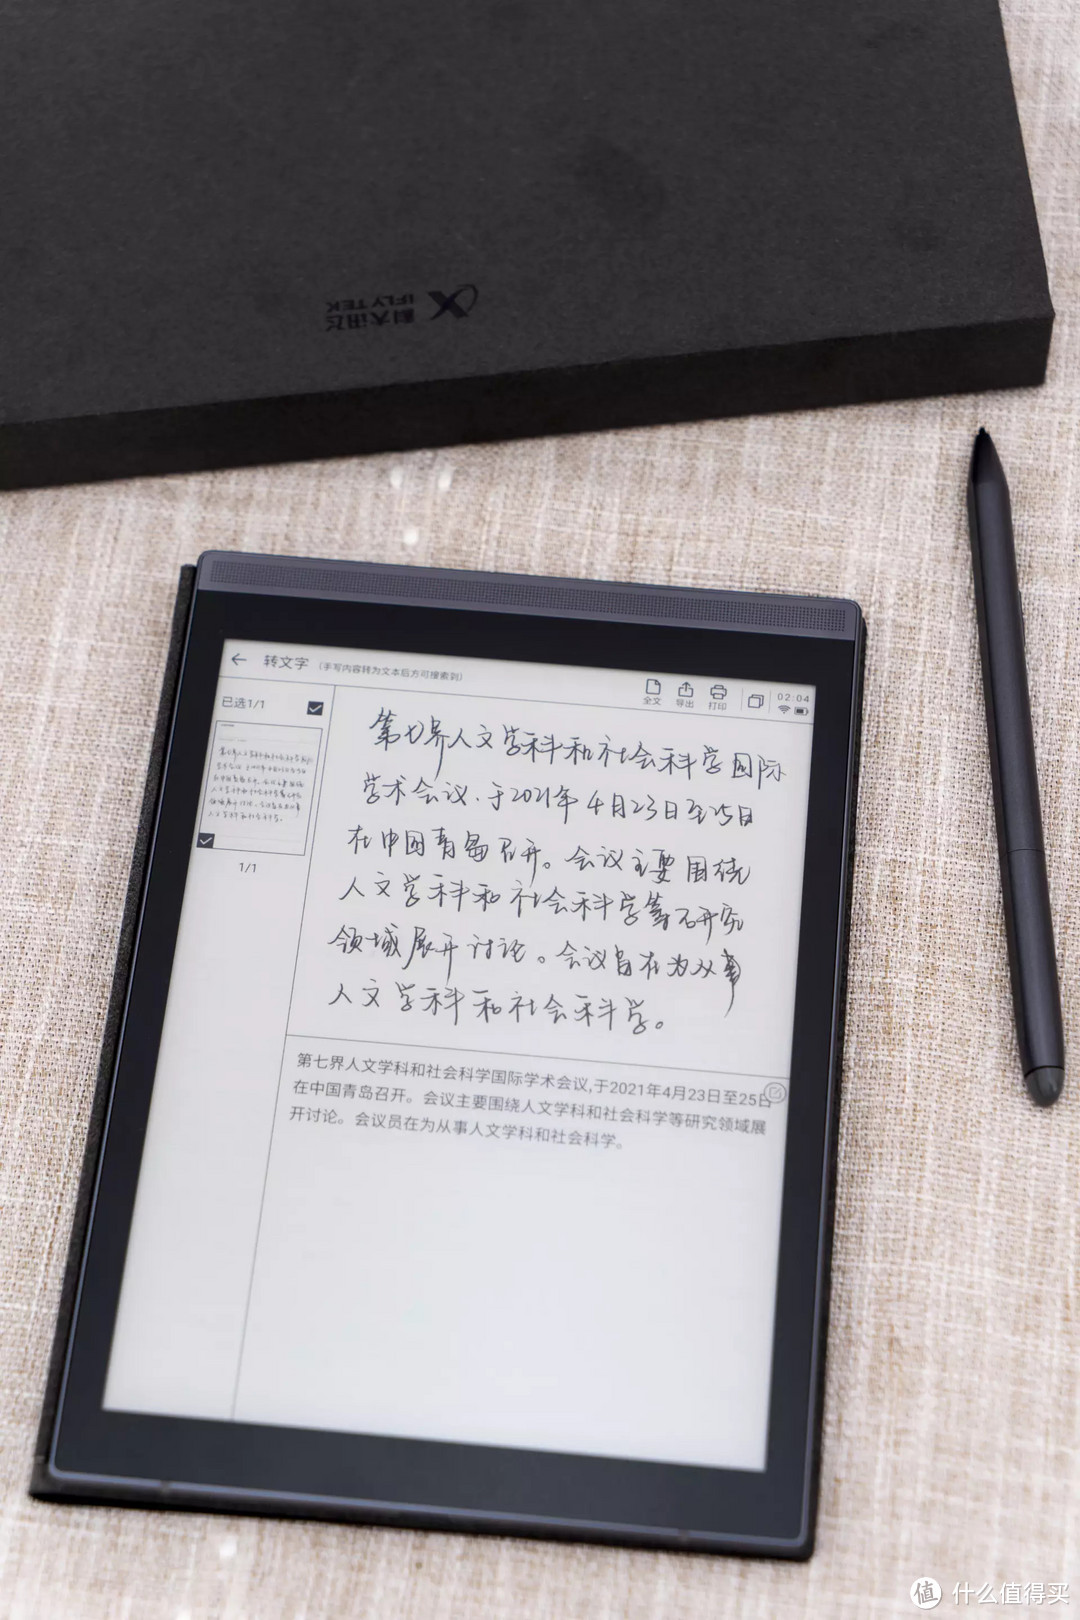 科大讯飞
IFLYTEK
转文字 (手写内容转为文本后方可搜索到)
全文 导出 打印
02:04
已选1/1
1/1
第七界人文学科和社会科学国际
学术会议，于2021年4月23日至25日
在中国青岛召开。会议主要围绕
人文学科和社会科学等研究
领域展开讨论。会议旨在为从事
人文学科和社会科学。
第七界人文学科和社会科学国际学术会议,于2021年4月23日至25日
在中国青岛召开。会议主要围绕人文学科和社会科学等研究领域展
开讨论。会议员在为从事人文学科和社会科学。
值 什么值得买